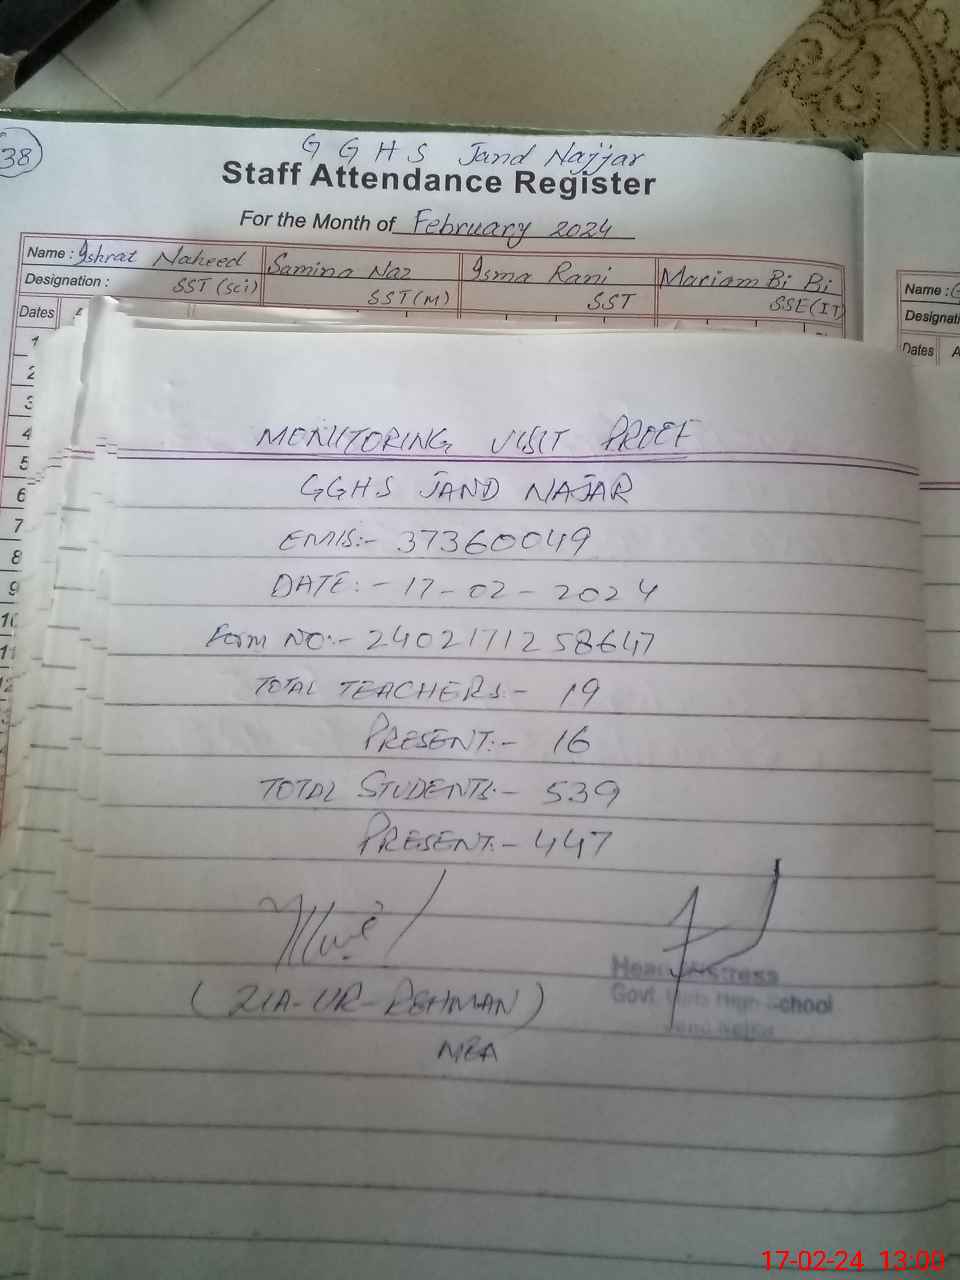 38
G G H S Jand Najjar
Staff Attendance Register
For the Month of February 2024
Name : Ishrat Naheed Samina Naz Isma Rani Mariam Bi Bi
Designation : SST (Sci) SST (M) SST SSE (IT)
Name :
Designati
Dates
Dates A
1
2
3
4
5
6
7
8
9
10
11
12
MONITORING VISIT PROOF
GGHS JAND NAJAR
EMIS:- 37360049
DATE:- 17-02-2024
Form NO:- 2402171258647
TOTAL TEACHERS:- 19
PRESENT:- 16
TOTAL STUDENTS:- 539
PRESENT:- 447
(ZIA-UR-REHMAN)
MEA
Headmistress
Govt. Girls High School
Jand Najjar
17-02-24 13:00